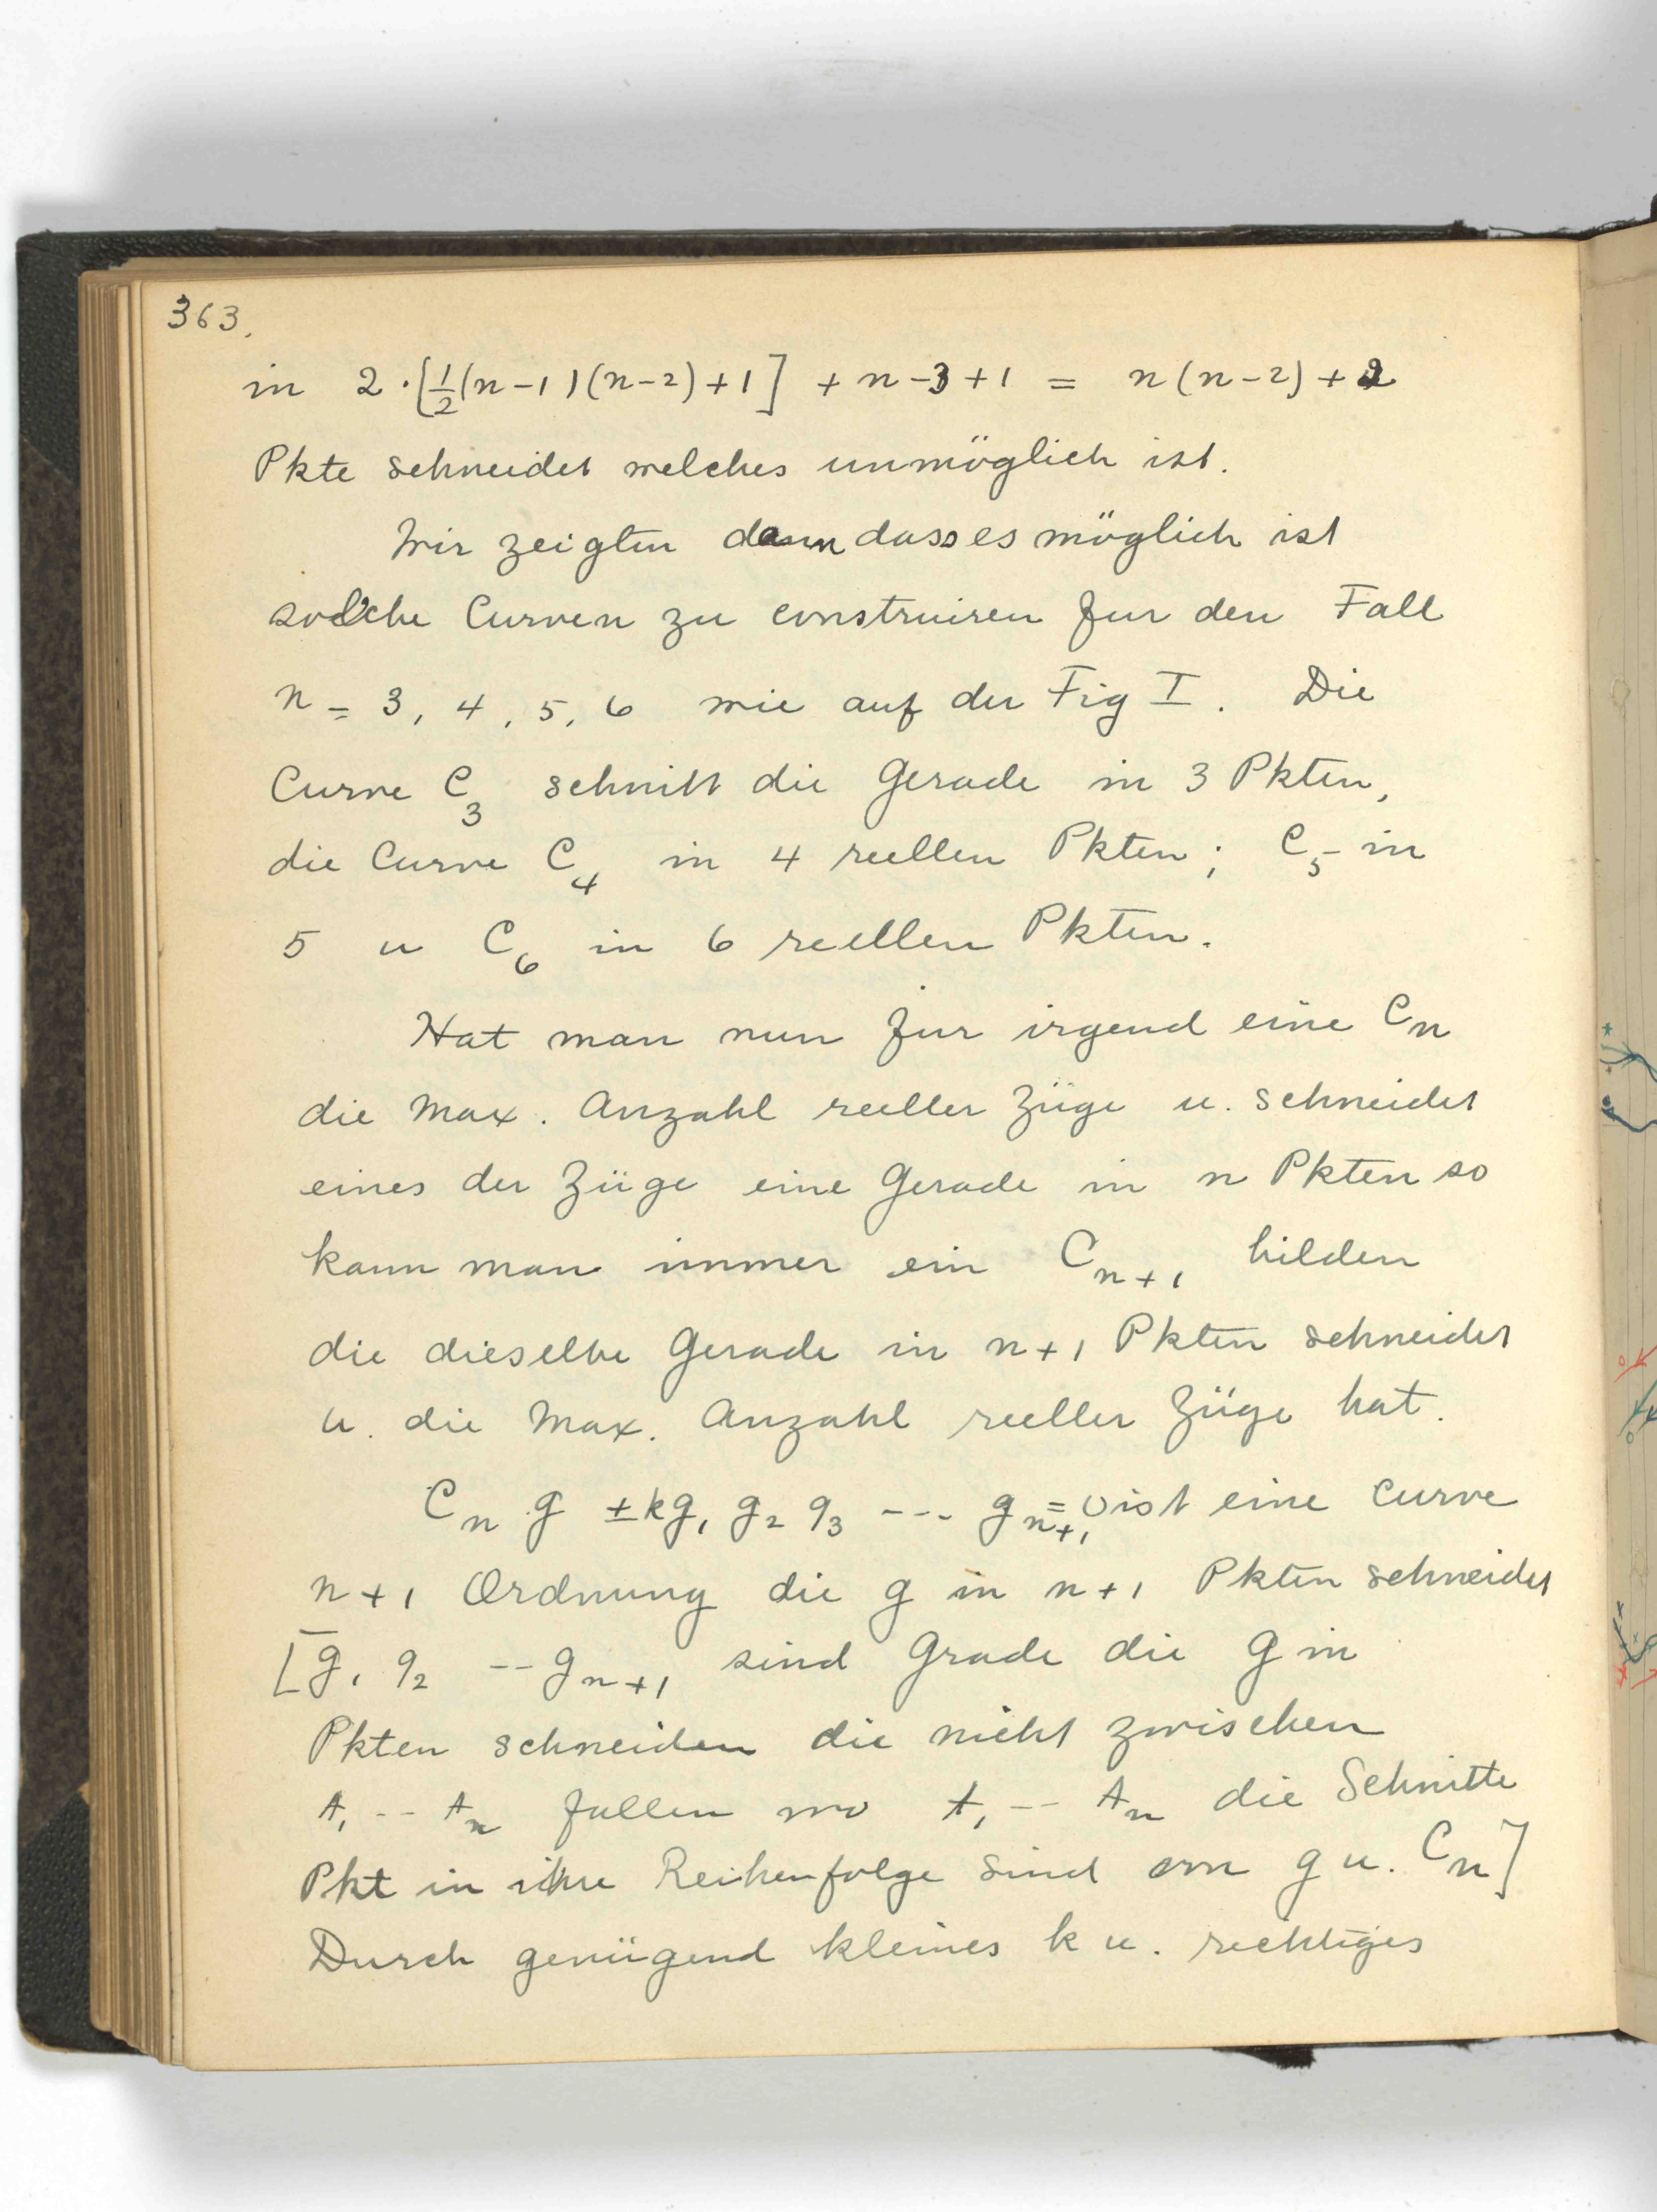 363.
in 2·[½(n-1)(n-2)+1] + n-3+1 = n(n-2)+2
Pkte schneidet welches unmöglich ist.
Wir zeigten dann dass es möglich ist
solche Curven zu construiren fur den Fall
n = 3, 4, 5, 6 wie auf der Fig I. Die
Curve C₃ schnitt die Gerade in 3 Pkten,
die Curve C₄ in 4 reellen Pkten; C₅ in
5 u C₆ in 6 reellen Pkten.
Hat man nun fur irgend eine Cₙ
die Max. Anzahl reeller Züge u. schneidet
eines der Züge eine Gerade in n Pkten so
kann man immer ein Cₙ₊₁ bilden
die dieselbe Gerade in n+1 Pkten schneidet
u. die Max. Anzahl reeller Züge hat.
Cₙ g ± kg₁ g₂ g₃ --- gₙ₊₁ = 0 ist eine Curve
n+1 Ordnung die g in n+1 Pkten schneidet
[g₁ g₂ -- gₙ₊₁ sind Grade die g in
Pkten schneiden die nicht zwischen
A₁ -- Aₙ fallen wo A₁ -- Aₙ die Schnitte
Pkt in ihre Reihenfolge sind von g u. Cₙ]
Durch genügend kleines k u. richtiges